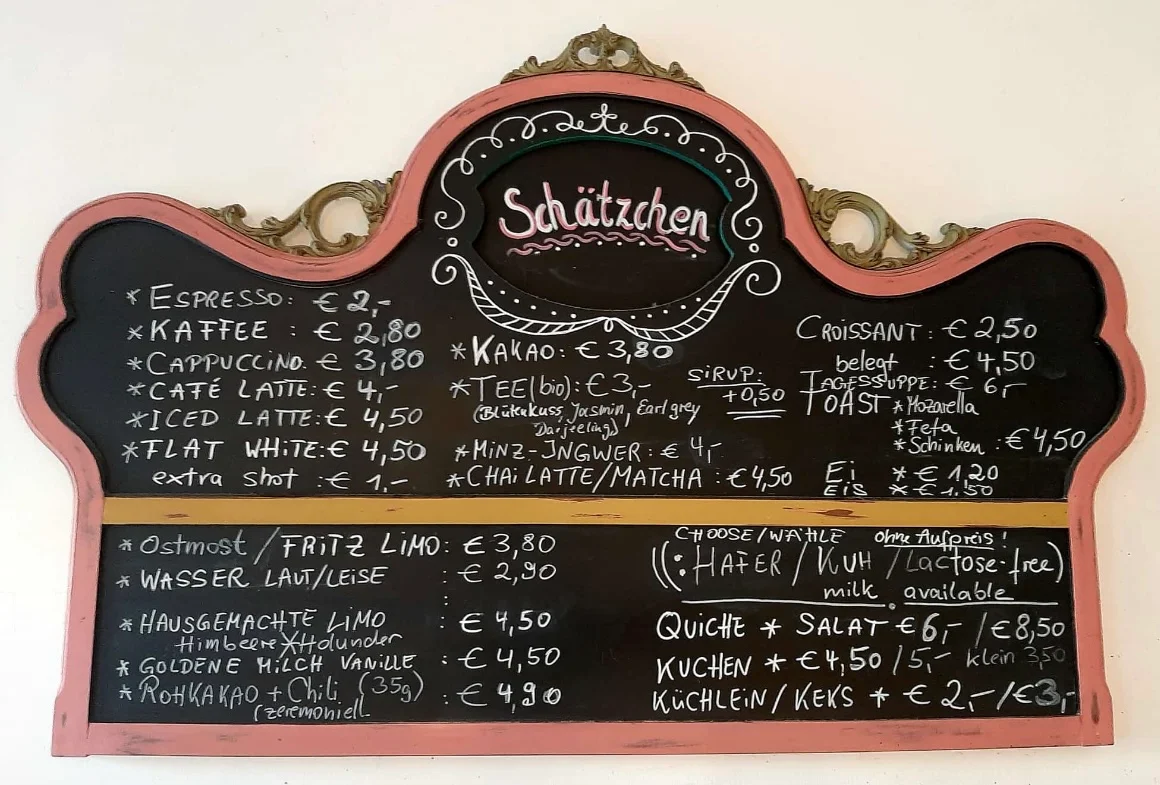 Schätzchen
* ESPRESSO: € 2,-
* KAFFEE : € 2,80
* CAPPUCCINO: € 3,80
* CAFÉ LATTE: € 4,-
* ICED LATTE: € 4,50
* FLAT WHITE: € 4,50
extra shot :€ 1,-
* KAKAO: € 3,80
* TEE (bio): € 3,-
(Blütenkuss, Jasmin, Earl grey
Darjeeling)
SiRUP:
+0,50
* MiNZ-INGWER: € 4,-
* CHAi LATTE/MATCHA : € 4,50
CROISSANT: € 2,50
belegt : € 4,50
TAGESSUPPE: € 6,-
TOAST * Mozarella
* Feta
* Schinken :€ 4,50
Ei * € 1,20
EiS * € 1.50
* Ostmost / FRiTZ LiMO: € 3,80
* WASSER LAUT/LEISE : € 2,90
:
* HAUSGEMACHTE LiMO : € 4,50
Himbeere * Holunder
* GOLDENE MiLCH VANiLLE : € 4,50
* ROHKAKAO + Chili (35g) : € 4,90
(zeremoniell
CHOOSE/WÄHLE ohne Aufpreis!
((: HAFER / KUH / Lactose-free)
milk available
QUICHE * SALAT € 6,- / € 8,50
KUCHEN * € 4,50 / 5,- klein 3,50
KÜCHLEiN / KEKS * € 2,- / € 3,-